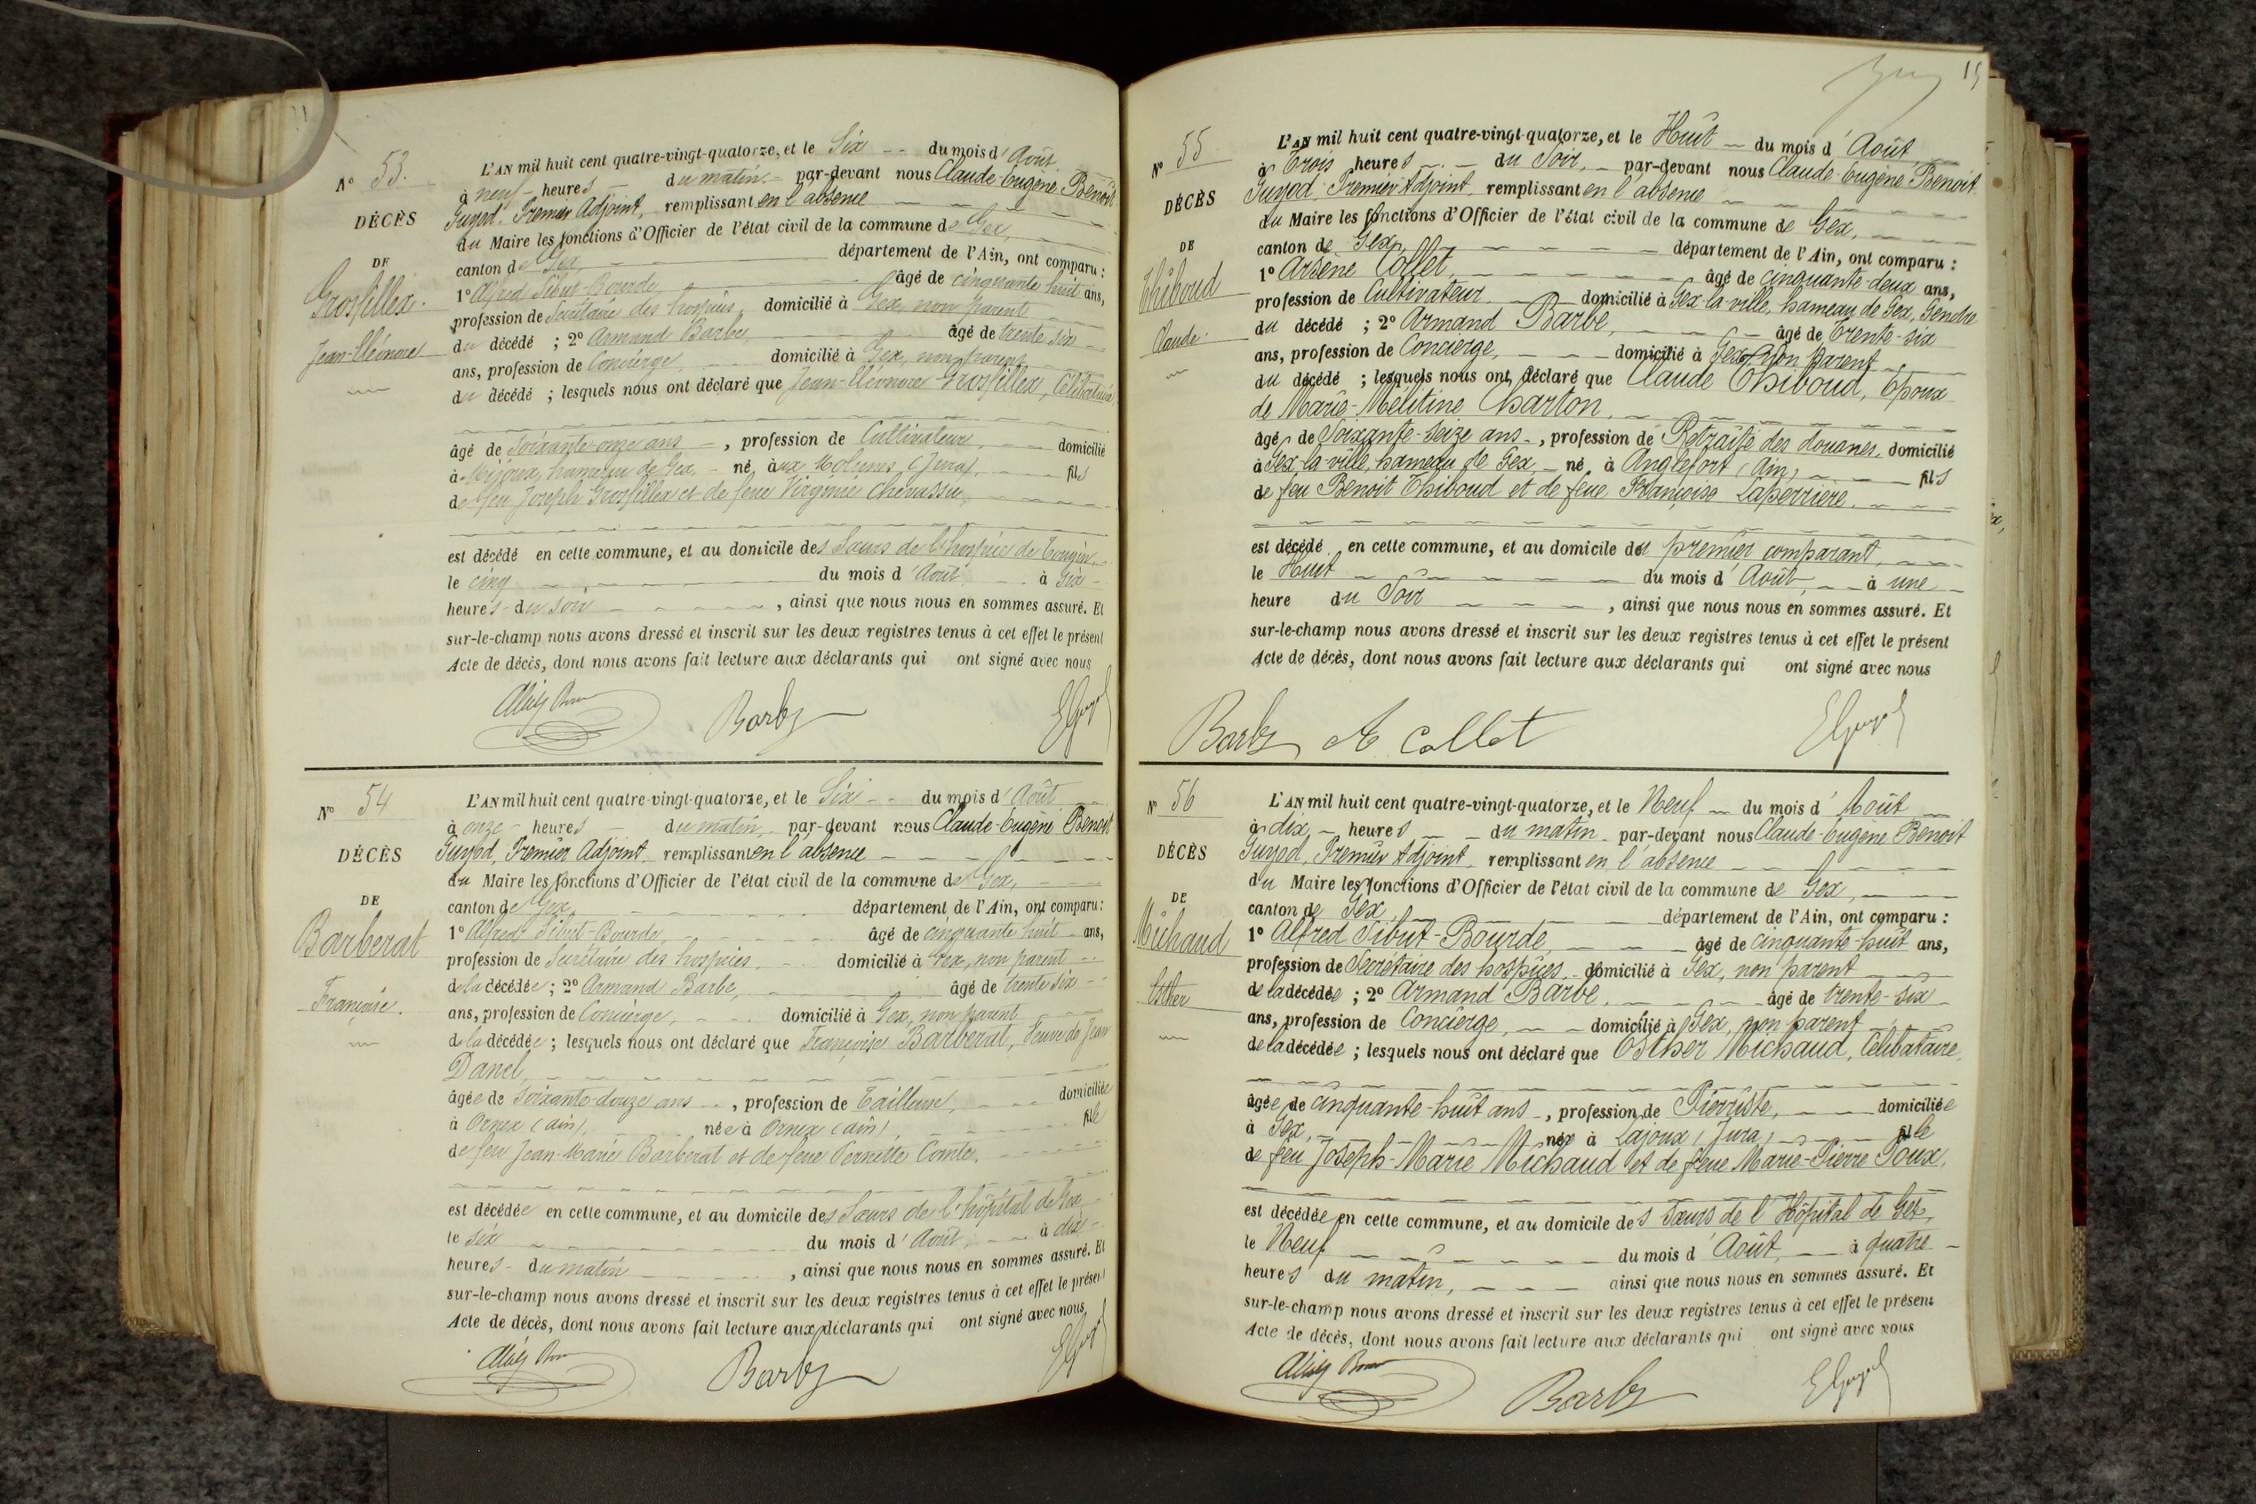 N° 53.
DÉCÈS
DE
Grosfillex.
Jean-Eléonore
L'AN mil huit cent quatre-vingt-quatorze, et le Six du mois d'Août
à neuf heures du matin. par-devant nous Claude-Eugène Benoit
Guyod, Premier Adjoint, remplissant en l'absence
du Maire les fonctions d'Officier de l'état civil de la commune de Gex,
canton de Gex, département de l'Ain, ont comparu :
1° Alfred Sibut-Bourde, âgé de cinquante huit ans,
profession de Secrétaire des hospices, domicilié à Gex, non parent
du décédé ; 2° Armand Barbe, âgé de trente six
ans, profession de Concierge, domicilié à Gex, non parent
du décédé ; lesquels nous ont déclaré que Jean-Eléonore Grosfillex, Célibataire,
âgé de soixante-onze ans, profession de Cultivateur, domicilié
à Mijoux, hameau de Gex, né aux Molunes (Jura), fils
de feu Joseph Grosfillex et de feue Virginie Chevassu,
est décédé en cette commune, et au domicile des Sœurs de l'hospice de Tougin,
le cinq du mois d'Août à six
heures du soir, ainsi que nous nous en sommes assuré. Et
sur-le-champ nous avons dressé et inscrit sur les deux registres tenus à cet effet le présent
Acte de décès, dont nous avons fait lecture aux déclarants qui ont signé avec nous
Barbe EGuyod
N° 54
DÉCÈS
DE
Barberat
Françoise.
L'AN mil huit cent quatre-vingt-quatorze, et le Six du mois d'Août
à onze heures du matin, par-devant nous Claude-Eugène Benoit
Guyod, Premier Adjoint remplissant en l'absence
du Maire les fonctions d'Officier de l'état civil de la commune de Gex,
canton de Gex département de l'Ain, ont comparu :
1° Alfred Sibut-Bourde, âgé de cinquante huit ans,
profession de Secrétaire des hospices, domicilié à Gex, non parent
de la décédée ; 2° Armand Barbe, âgé de trente six
ans, profession de Concierge, domicilié à Gex, non parent
de la décédée ; lesquels nous ont déclaré que Françoise Barberat, Veuve de Jean
Danel,
âgée de soixante-douze ans, profession de Tailleuse, domiciliée
à Ornex (Ain), née à Ornex (Ain), fille
de feu Jean-Marie Barberat et de feue Pernette Comte.
est décédée en cette commune, et au domicile des Sœurs de l'hôpital de Gex
le six du mois d'Août, à dix
heures du matin, ainsi que nous nous en sommes assuré. Et
sur-le-champ nous avons dressé et inscrit sur les deux registres tenus à cet effet le présent
Acte de décès, dont nous avons fait lecture aux déclarants qui ont signé avec nous
Barbe EGuyod
N° 55
DÉCÈS
DE
Thiboud
Claude.
L'AN mil huit cent quatre-vingt-quatorze, et le Huit du mois d'Août
à Trois heures du Soir, par-devant nous Claude-Eugène Benoit
Guyod, Premier Adjoint remplissant en l'absence
du Maire les fonctions d'Officier de l'état civil de la commune de Gex,
canton de Gex, département de l'Ain, ont comparu :
1° Arsène Collet, âgé de cinquante-deux ans,
profession de Cultivateur domicilié à Gex-la-ville, hameau de Gex, Gendre
du décédé ; 2° Armand Barbe, âgé de Trente-six
ans, profession de Concierge, domicilié à Gex, Non Parent
du décédé ; lesquels nous ont déclaré que Claude Thiboud, Epoux
de Marie-Mélitine Charton,
âgé de Soixante-seize ans, profession de Retraité des douanes, domicilié
à Gex-la-ville, hameau de Gex, né à Anglefort (Ain) fils
de feu Benoit Thiboud et de feue Françoise Laperrière.
est décédé en cette commune, et au domicile du premier comparant,
le Huit du mois d'Août, à une
heure du Soir, ainsi que nous nous en sommes assuré. Et
sur-le-champ nous avons dressé et inscrit sur les deux registres tenus à cet effet le présent
Acte de décès, dont nous avons fait lecture aux déclarants qui ont signé avec nous
Barbe A Collet EGuyod
N° 56
DÉCÈS
DE
Michaud
Esther
L'AN mil huit cent quatre-vingt-quatorze, et le Neuf du mois d'Août
à dix heures du matin par-devant nous Claude-Eugène Benoit
Guyod, Premier Adjoint remplissant en l'absence
du Maire les fonctions d'Officier de l'état civil de la commune de Gex,
canton de Gex, département de l'Ain, ont comparu :
1° Alfred Sibut-Bourde, âgé de cinquante-huit ans,
profession de Secrétaire des hospices, domicilié à Gex, non parent
de la décédée ; 2° Armand Barbe, âgé de trente-six
ans, profession de Concierge, domicilié à Gex, non parent
de la décédée ; lesquels nous ont déclaré que Esther Michaud, Célibataire,
âgée de cinquante-huit ans, profession de Pierriste, domiciliée
à Gex, née à Lajoux (Jura) fille
de feu Joseph-Marie Michaud et de feue Marie-Pierre Poux,
est décédée en cette commune, et au domicile des Sœurs de l'Hôpital de Gex,
le Neuf du mois d'Août, à quatre
heures du matin, ainsi que nous nous en sommes assuré. Et
sur-le-champ nous avons dressé et inscrit sur les deux registres tenus à cet effet le présent
Acte de décès, dont nous avons fait lecture aux déclarants qui ont signé avec nous
Barbe EGuyod